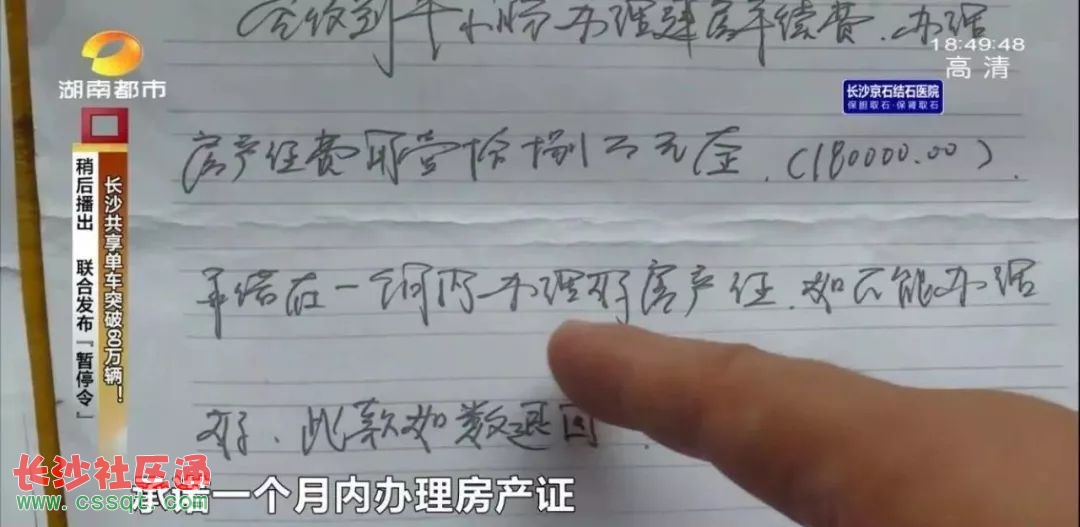 湖南都市
18:49:48
高清
长沙京石结石医院
保胆取石·保肾取石
今收到 办理建房手续费、办理
房产证费用壹拾捌万元 (180000.00).
承诺在一个月内办理好房产证、如不能办理
好、此款如数退回.
长沙共享单车突破60万辆!
稍后播出 联合发布『暂停令』
承诺一个月内办理房产证
长沙社区通
www.cssqt.com